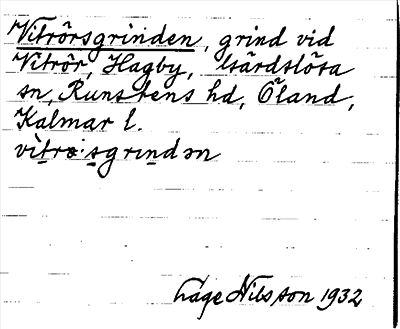 Vitrörsgrinden, grind vid
Vitrör, Hagby, Gärdslösa
sn, Runstens hd, Öland,
Kalmar l.
vìtrø:sgrɪndən
Låge Nilsson 1932